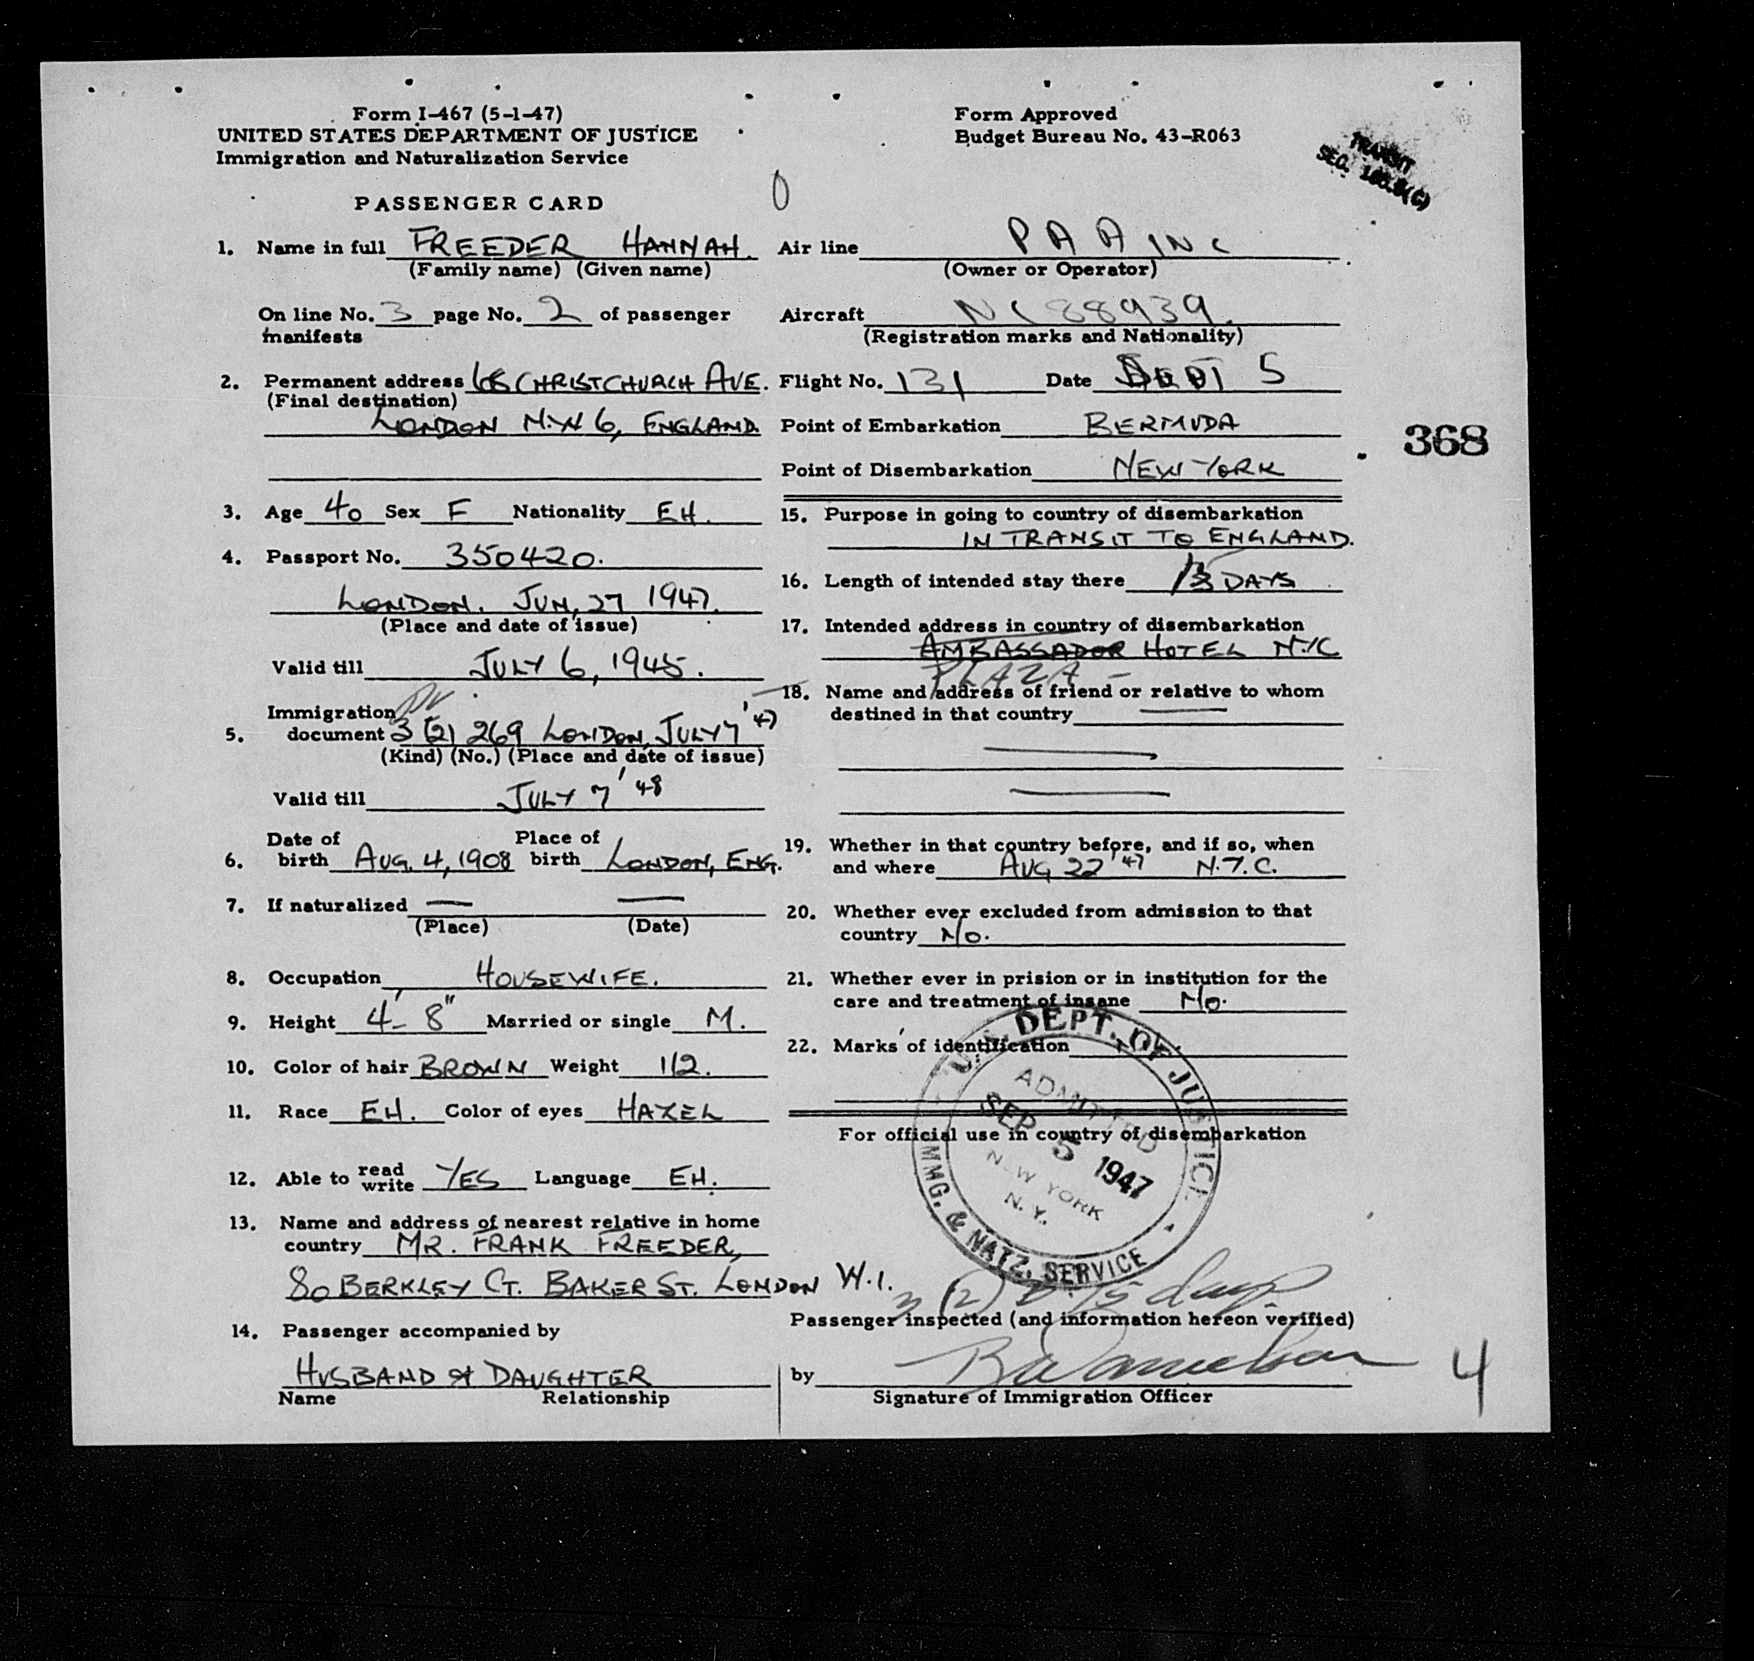 Form I-467 (5-1-47)
UNITED STATES DEPARTMENT OF JUSTICE
Immigration and Naturalization Service
PASSENGER CARD
Form Approved
Budget Bureau No. 43-R063
TRANSIT
SEC.
0
1. Name in full FREEDER HANNAH.
(Family name) (Given name)
On line No. 3 page No. 2 of passenger
manifests
2. Permanent address CHRISTCHURCH AVE.
(Final destination)
LONDON N.W 6, ENGLAND.
3. Age 40 Sex F Nationality EH.
4. Passport No. 350420.
LONDON. JUN, 27 1947.
(Place and date of issue)
Valid till JULY 6, 1945.
Immigration
5. document 3 (2) 269 LONDON, JULY 7 '47
(Kind) (No.) (Place and date of issue)
Valid till JULY 7 '48
Date of Place of
6. birth AUG. 4, 1908 birth LONDON, ENG.
7. If naturalized — —
(Place) (Date)
8. Occupation HOUSEWIFE.
9. Height 4'- 8" Married or single M.
10. Color of hair BROWN Weight 112.
11. Race EH. Color of eyes HAZEL
12. Able to read write YES Language EH.
13. Name and address of nearest relative in home
country MR. FRANK FREEDER,
80 BERKLEY CT. BAKER ST. LONDON W.1.
14. Passenger accompanied by
HUSBAND & DAUGHTER
Name Relationship
Air line P A A INC
(Owner or Operator)
Aircraft NC 88939.
(Registration marks and Nationality)
Flight No. 131 Date SEPT 5
Point of Embarkation BERMUDA
Point of Disembarkation NEW YORK
368
15. Purpose in going to country of disembarkation
IN TRANSIT TO ENGLAND.
16. Length of intended stay there DAYS
17. Intended address in country of disembarkation
AMBASSADOR HOTEL NYC
PLAZA -
18. Name and address of friend or relative to whom
destined in that country —
19. Whether in that country before, and if so, when
and where AUG 22 '47 N.Y.C.
20. Whether ever excluded from admission to that
country No.
21. Whether ever in prision or in institution for the
care and treatment of insane No.
22. Marks of identification
For official use in country of disembarkation
U.S. DEPT. OF JUSTICE
ADMITTED
SEP 5 1947
NEW YORK
N. Y.
IMMG. & NATZ. SERVICE
3 (2) 15 days
Passenger inspected (and information hereon verified)
by
Signature of Immigration Officer
4